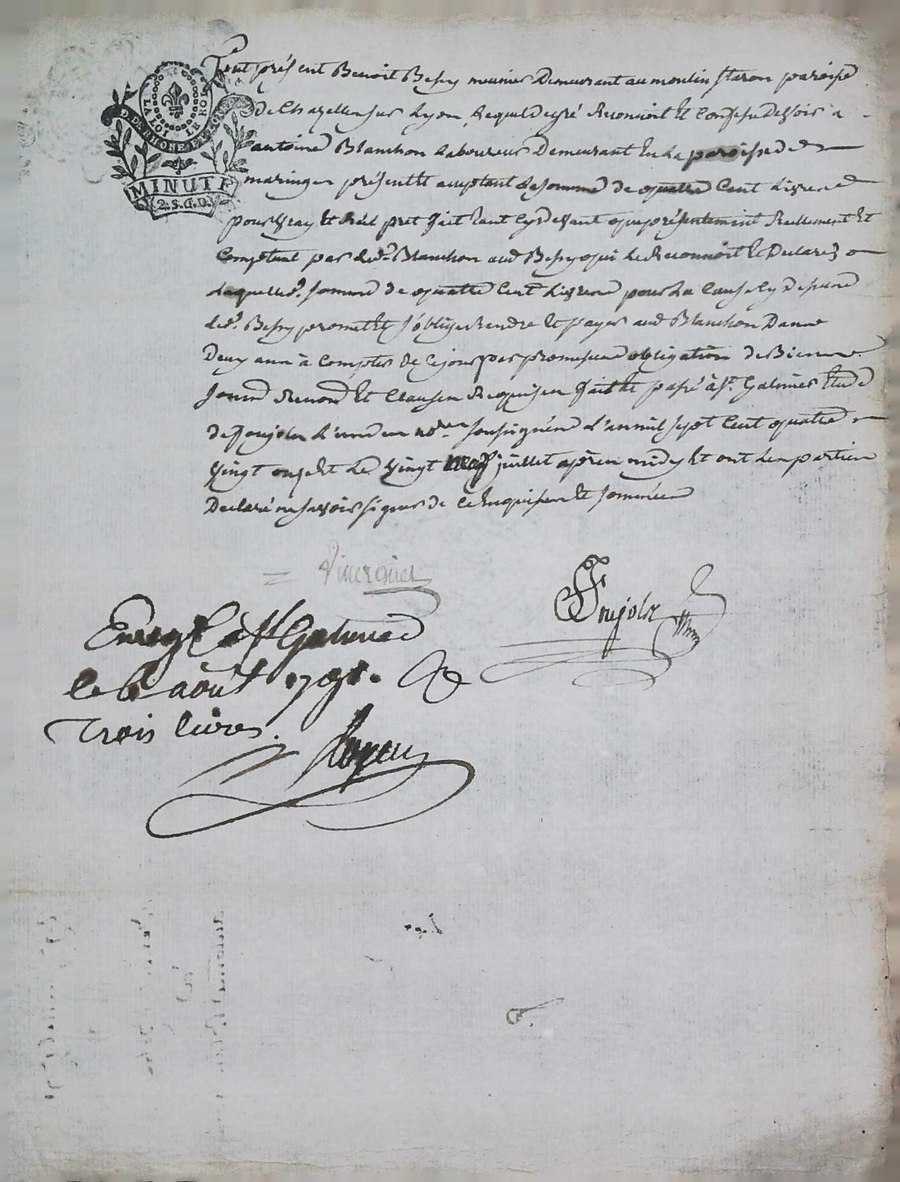 LA LOI LE ROI
MINUTE
2. S. 6. D.
fut présent Benoit Bessy meunier Demeurant au moulin staron paroisse
de Chazelles sur Lyon, Lequel de gré Reconnoit Et Confesse Devoir a
antoine Blanchon Laboureur Demeurant En La paroisse de
maringes présent Et acceptant La somme de quatre Cent Livres
pour vray Et Réel pret fait tant Cy devant que présentement Réellement Et
Comptant par led. Blanchon aud Bessy qui Le Reconnoit Et Declare
laquelle d. somme de quatre Cent Livres pour La Cause Cy dessus
led. Bessy promet Et s'oblige rendre Et payer aud Blanchon Dans
Deux ans à Compter de Ce jour par promesses obligation de Biens
soumis Renond Et Clauses Requises fait Et passé à St. Galmier Etude
de Foujols L'un des no.res soussignés L'an mil sept Cent quatre
vingt onze Et Le vingt juillet après midy Et ont Les parties
Declaré ne savoir signer de Ce Enquises Et sommées
Foujols
Enreg.t à St Galmier
le 6 août 1791.
Trois livres.